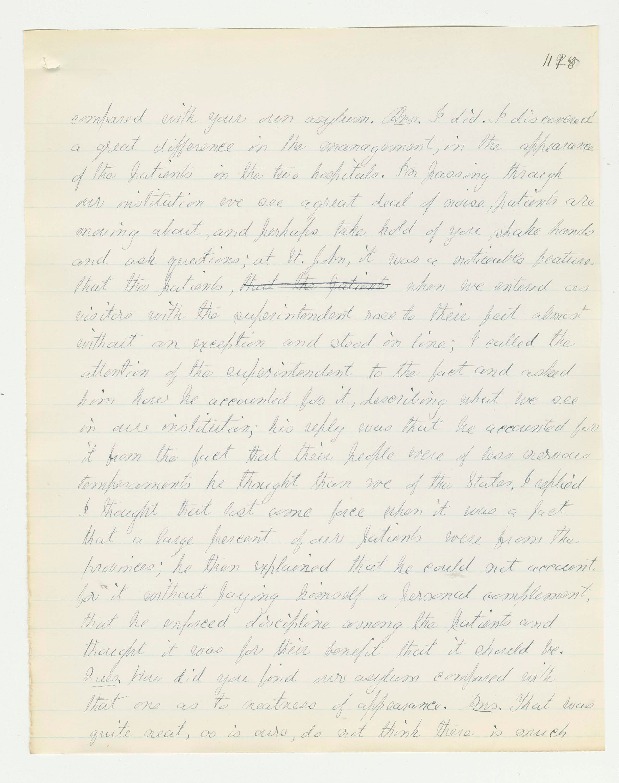 1178
compared with your own asylum. Ans. I did. I discovered
a great difference in the management, in the appearance
of the patients in the two hospitals. On passing through
our institution we see a great deal of noise, patients are
moving about, and perhaps take hold of you, shake hands
and ask questions; at St. John, it was a noticeable feature
that the patients, that the patients when we entered as
visitors with the superintendent rose to their feet almost
without an exception and stood in line; I called the
attention of the superintendent to the fact and asked
him how he accounted for it, describing what we see
in our institution; his reply was that he accounted for
it from the fact that their people were of less nervous
temperaments he thought than we of the States. I replied
I thought that lost some force when it was a fact
that a large percent of our patients were from the
provinces; he then explained that he could not account
for it without paying himself a personal complement,
that he enforced discipline among the patients and
thought it was for their benefit that it should be.
Ques. How did you find our asylum compared with
that one as to neatness of appearance. Ans. That was
quite neat, so is ours, do not think there is much